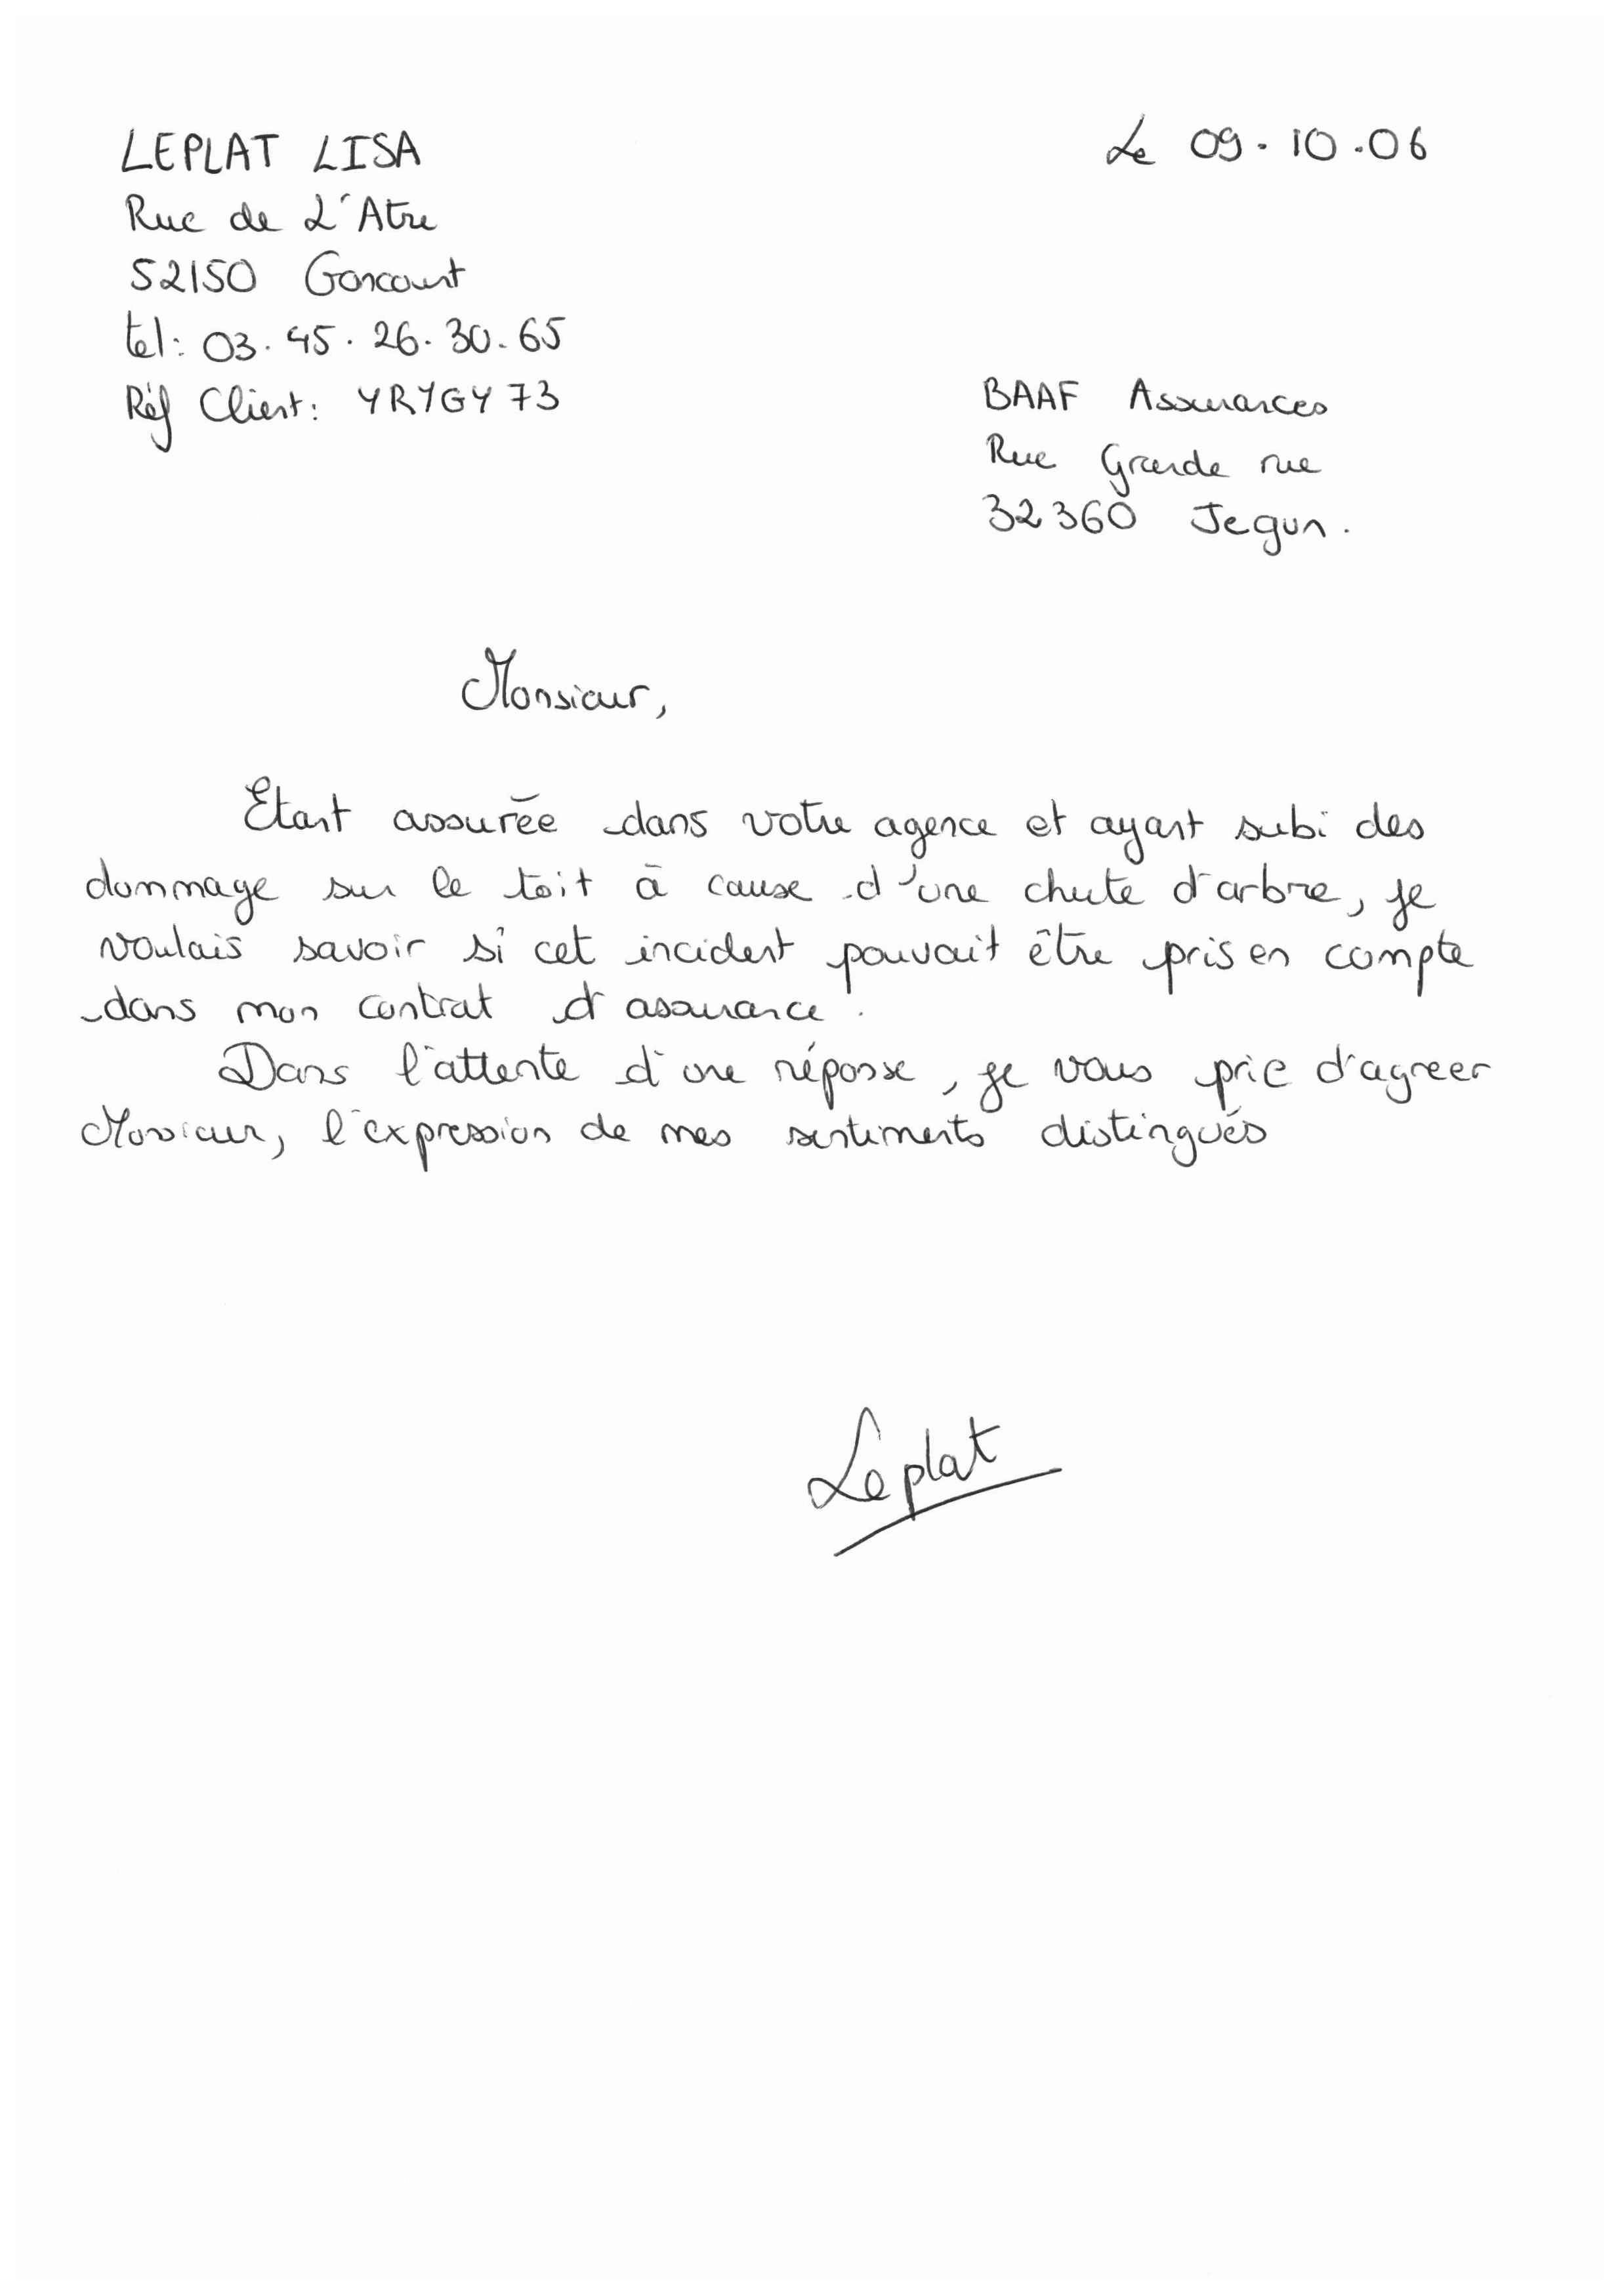 LEPLAT LISA
Le 09.10.06
Rue de L'Atre
52150 Goncourt
tel: 03.45.26.30.65
Réf Client: YRYGY73
BAAF Assurances
Rue Grande rue
32360 Jegun.
Monsieur,
Etant assurée dans votre agence et ayant subi des
dommage sur le toit à cause d'une chute d'arbre, je
voulais savoir si cet incident pouvait être pris en compte
dans mon contrat d'assurance.
Dans l'attente d'une réponse, je vous prie d'agreer
Monsieur, l'expression de mes sentiments distingués
Leplat